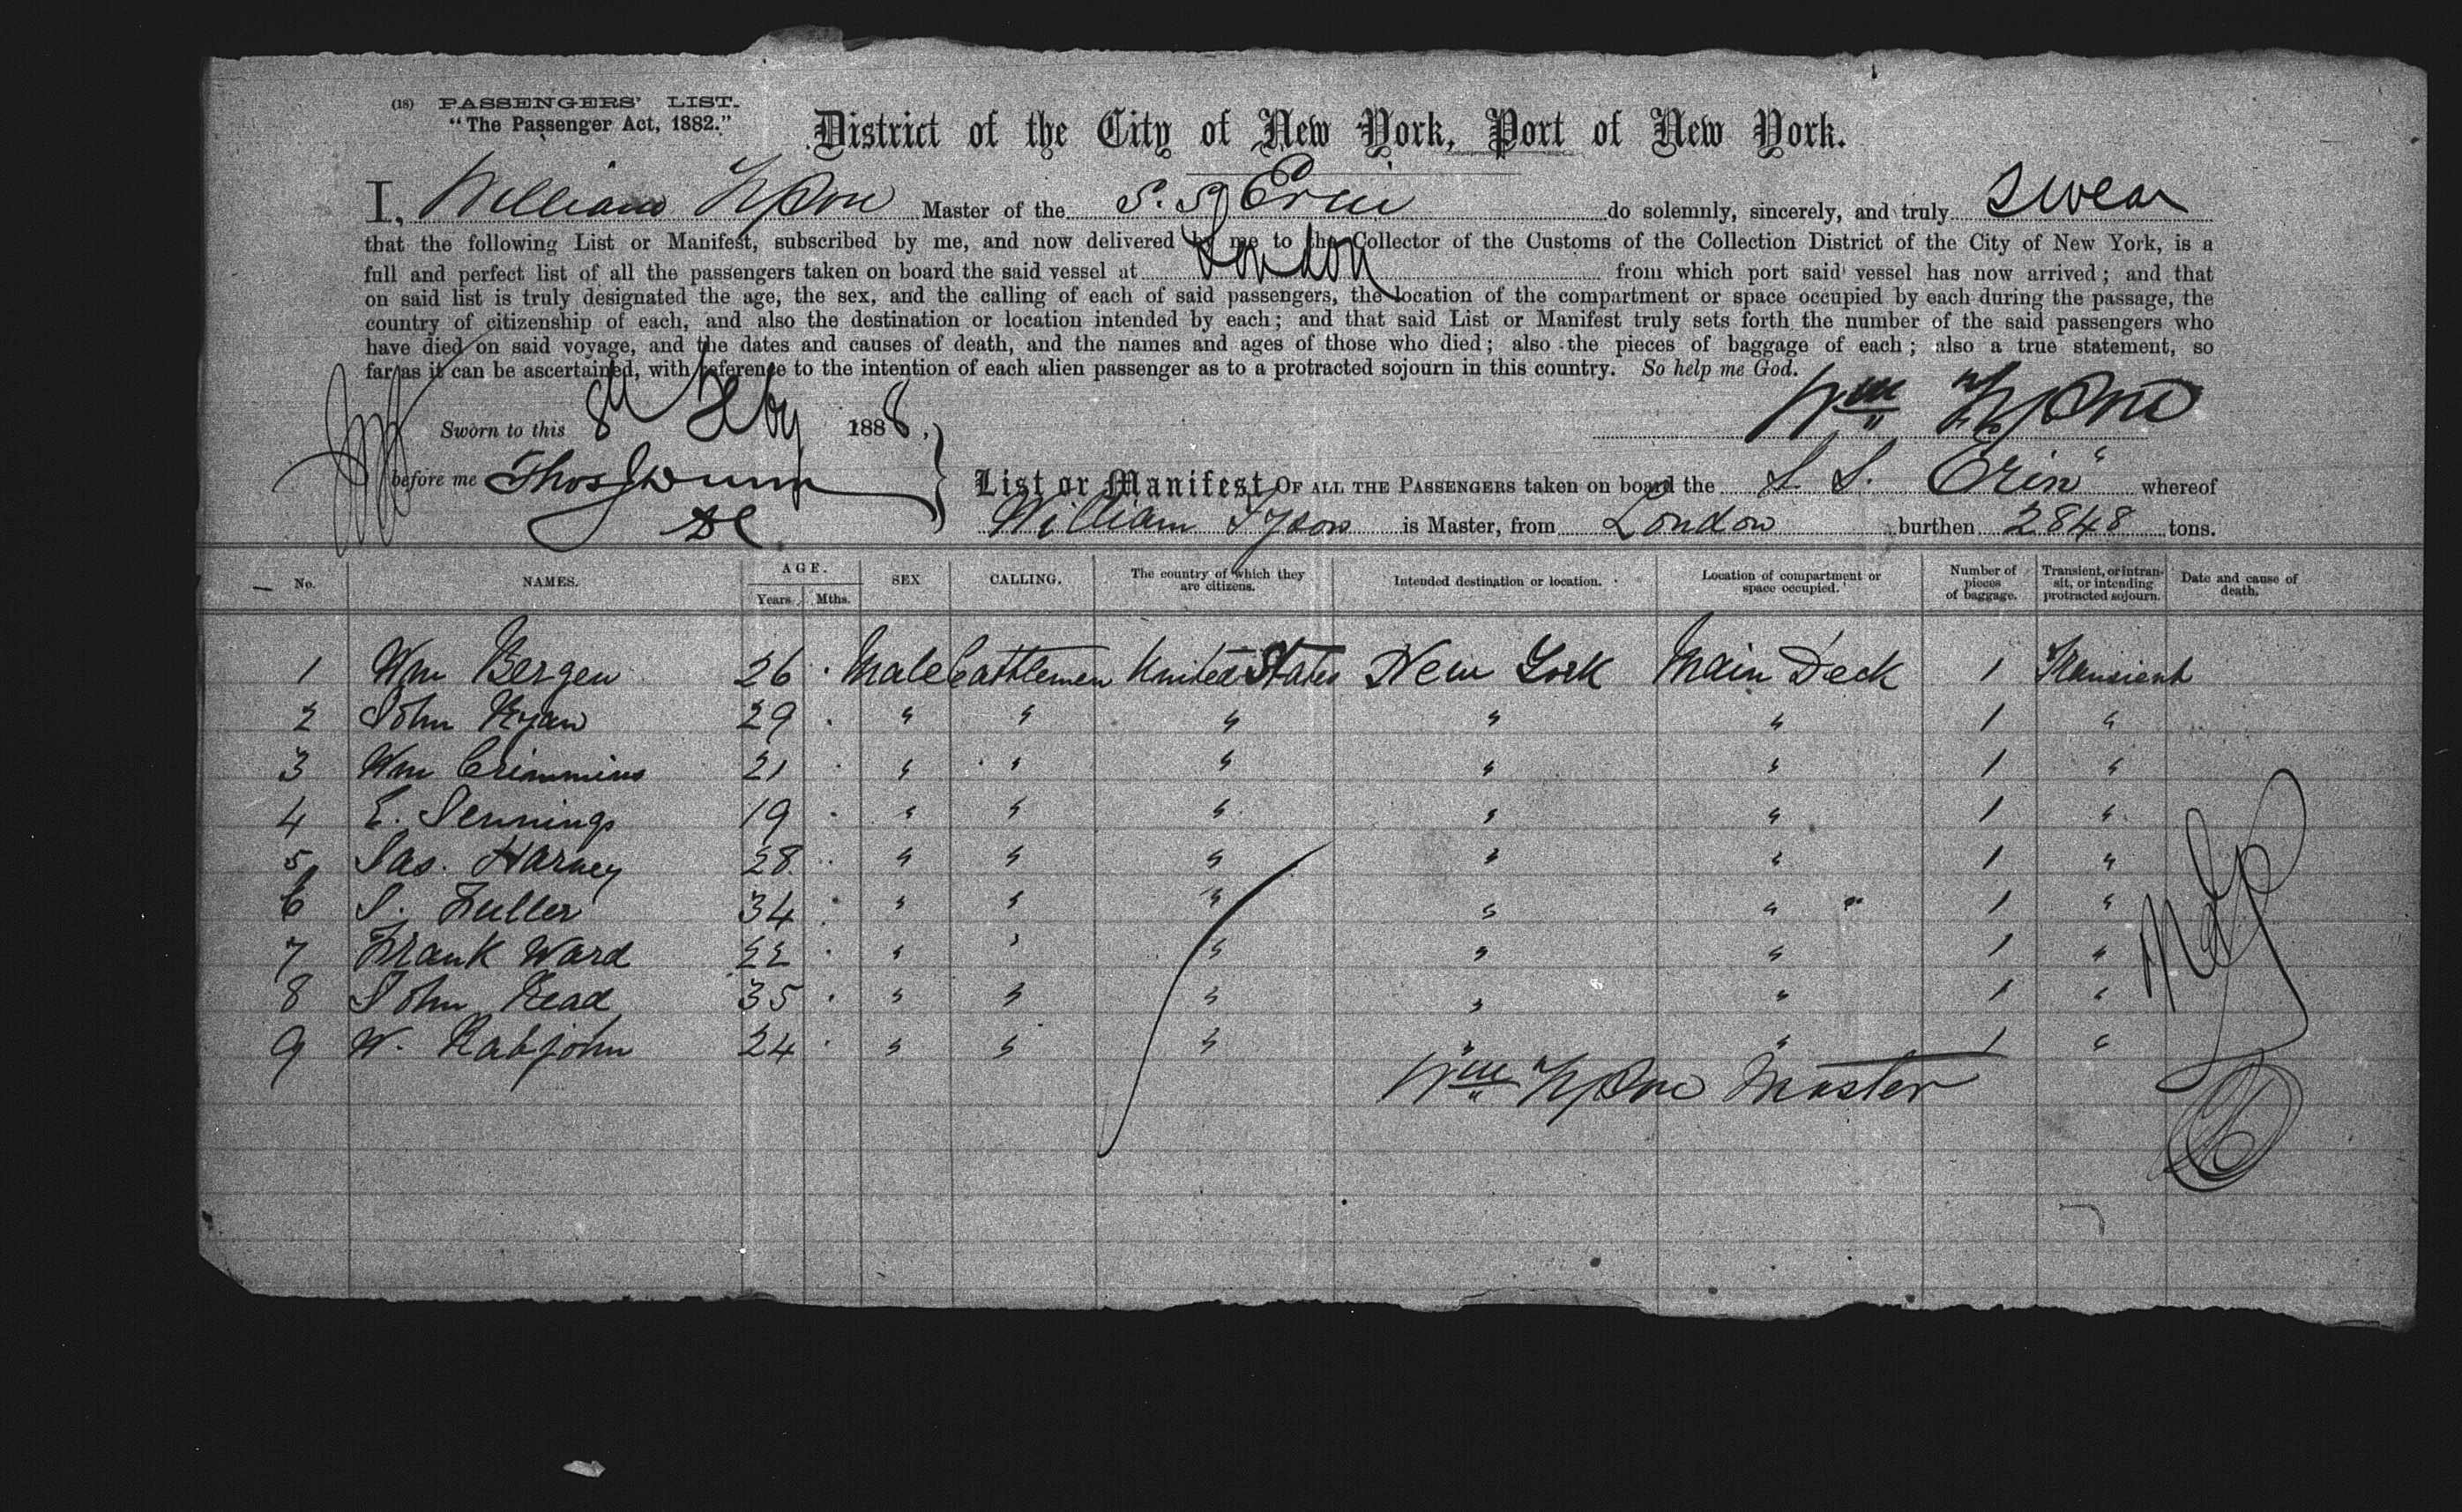 (18) PASSENGERS' LIST.
"The Passenger Act, 1882."
District of the City of New York, Port of New York.
I, William Tyson Master of the S. S. Erin do solemnly, sincerely, and truly swear
that the following List or Manifest, subscribed by me, and now delivered by me to the Collector of the Customs of the Collection District of the City of New York, is a
full and perfect list of all the passengers taken on board the said vessel at London from which port said vessel has now arrived; and that
on said list is truly designated the age, the sex, and the calling of each of said passengers, the location of the compartment or space occupied by each during the passage, the
country of citizenship of each, and also the destination or location intended by each; and that said List or Manifest truly sets forth the number of the said passengers who
have died on said voyage, and the dates and causes of death, and the names and ages of those who died; also the pieces of baggage of each; also a true statement, so
far as it can be ascertained, with reference to the intention of each alien passenger as to a protracted sojourn in this country. So help me God.
Wm Tyson
Sworn to this 8th Feby 1888,
before me Thos
List or Manifest OF ALL THE PASSENGERS taken on board the S. S. Erin" whereof
William Tyson is Master, from London burthen 2848 tons.
No. NAMES. AGE. Years Mths. SEX CALLING. The country of which they are citizens. Intended destination or location. Location of compartment or space occupied. Number of pieces of baggage. Transient, or in transit, or intending protracted sojourn. Date and cause of death.
1 Wm Bergen 26 Male Cattlemen United States New York Main Deck 1 Transient
2 John Ryan 29 " " " " " 1 "
3 Wm Crimmins 21 " " " " " 1 "
4 E. Jennings 19 " " " " " 1 "
5 Jas. Harney 28 " " " " " 1 "
6 J. Fuller 34 " " " " " 1 "
7 Frank Ward 22 " " " " " 1 "
8 John Read 35 " " " " " 1 "
9 W. Rabjohn 24 " " " " " 1 "
Wm Tyson Master